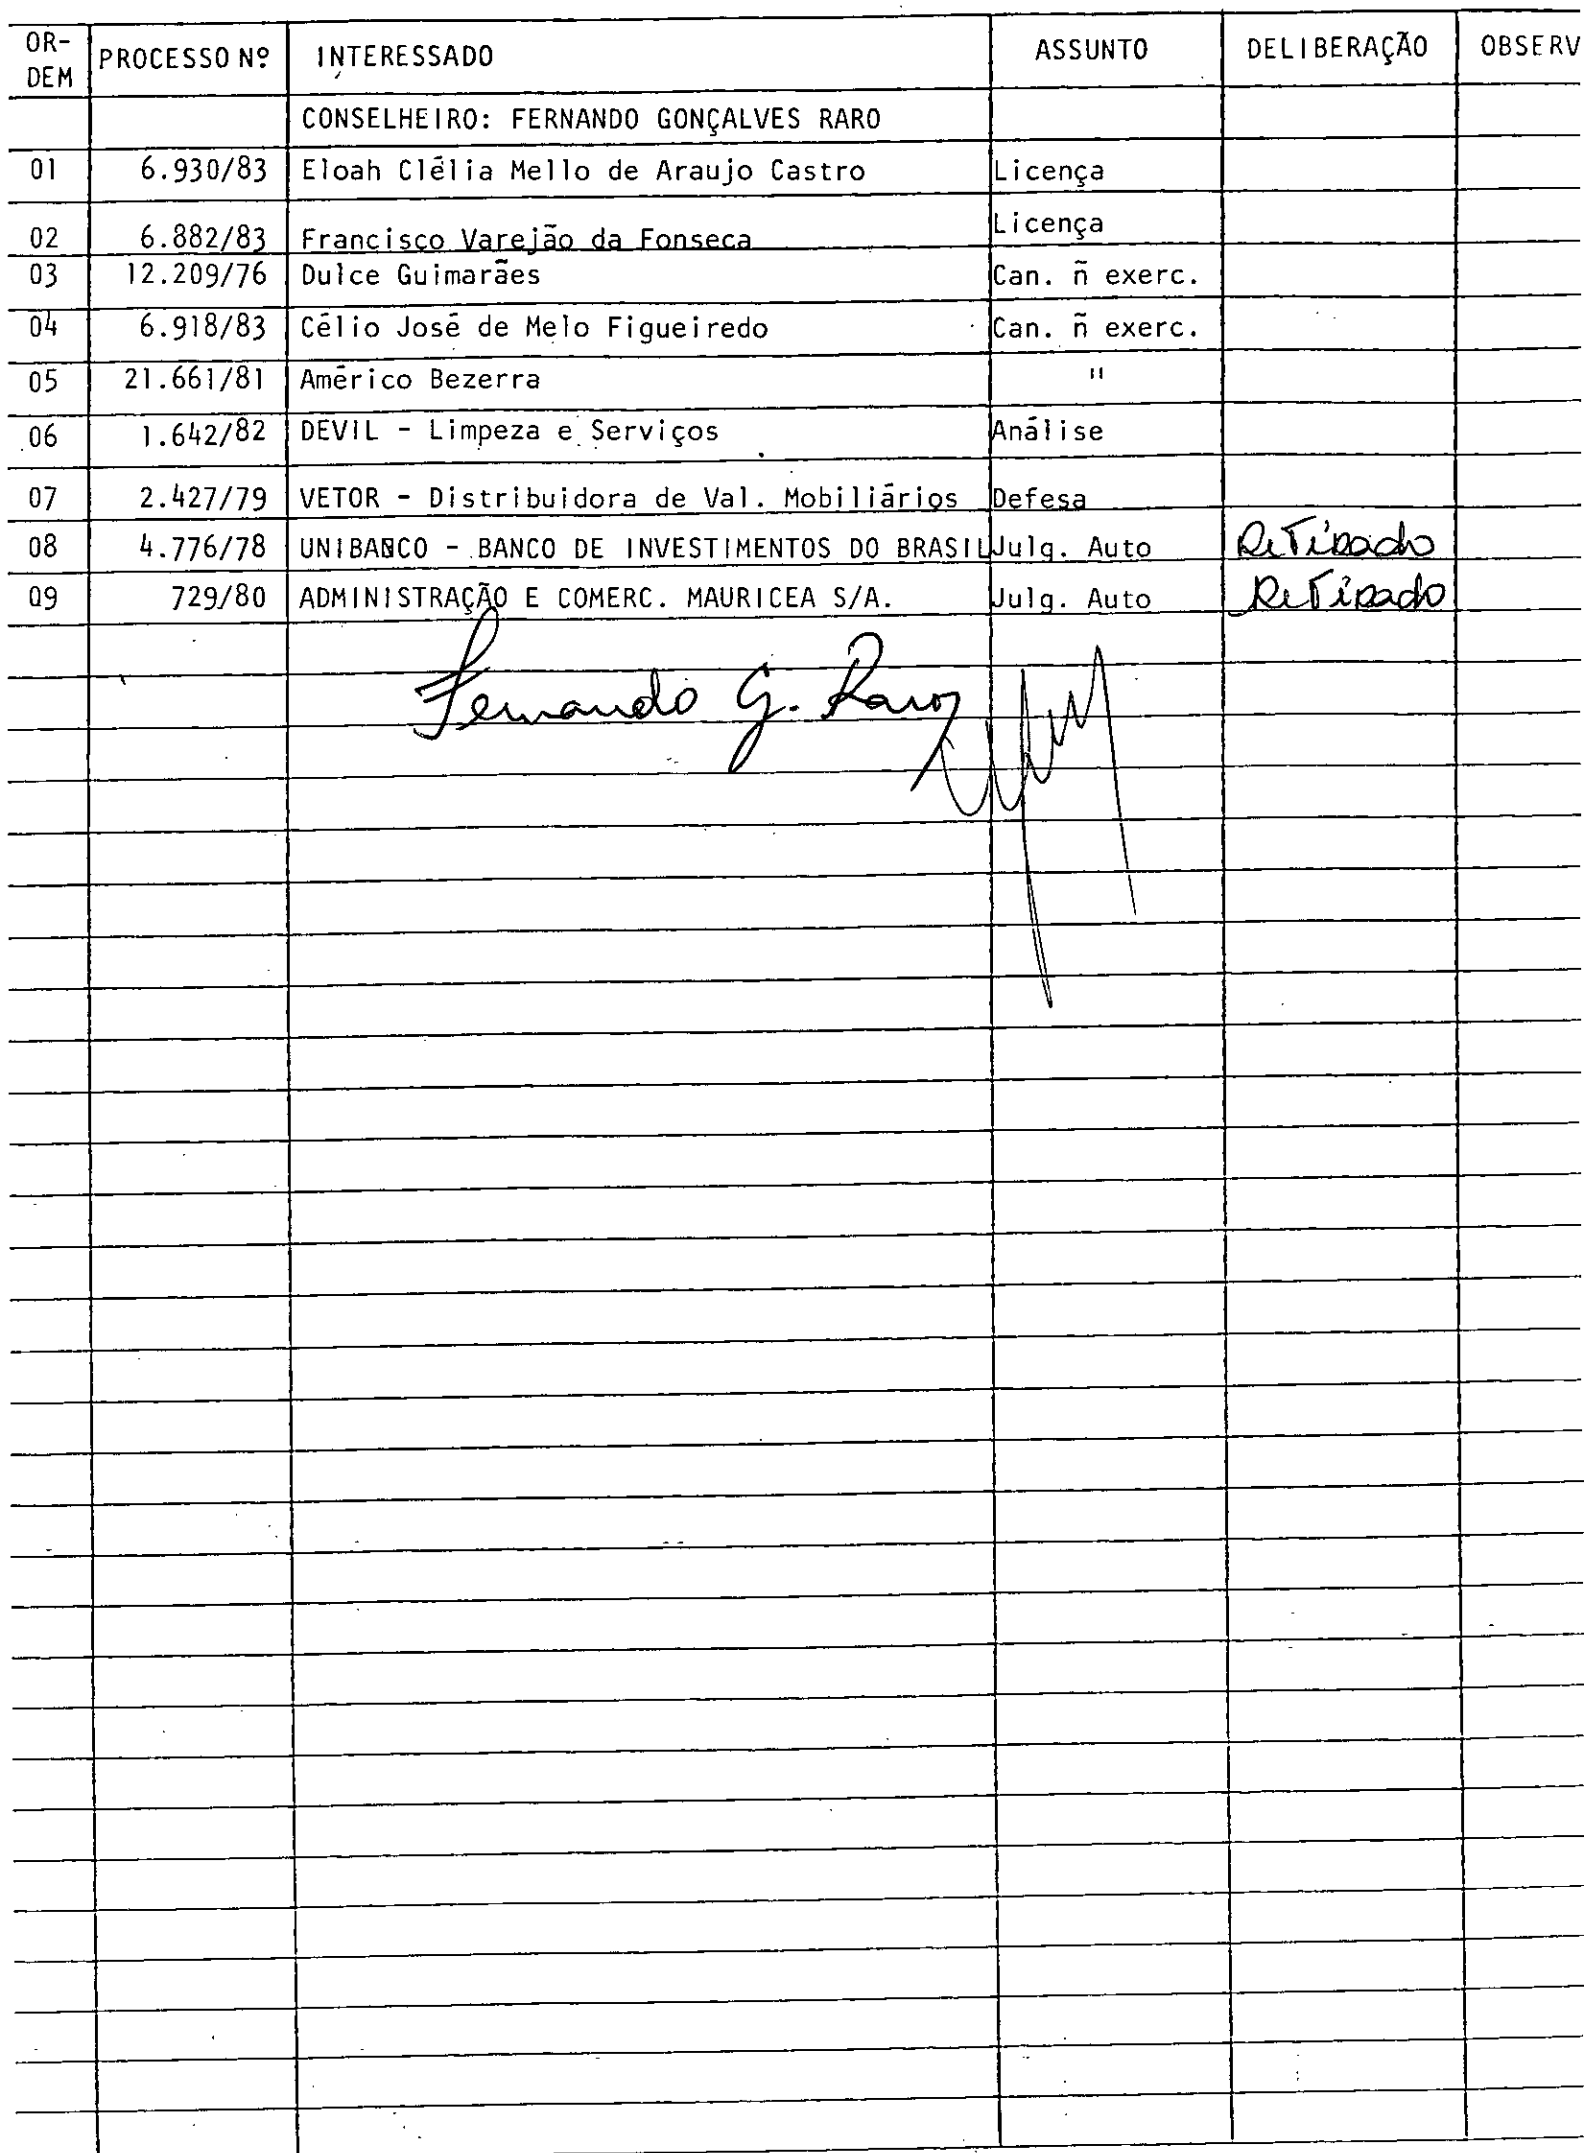 OR-DEM PROCESSO Nº INTERESSADO ASSUNTO DELIBERAÇÃO OBSERV
CONSELHEIRO: FERNANDO GONÇALVES RARO
01 6.930/83 Eloah Clélia Mello de Araujo Castro Licença
02 6.882/83 Francisco Varejão da Fonseca Licença
03 12.209/76 Dulce Guimarães Can. ñ exerc.
04 6.918/83 Célio José de Melo Figueiredo Can. ñ exerc.
05 21.661/81 Américo Bezerra "
06 1.642/82 DEVIL - Limpeza e Serviços Análise
07 2.427/79 VETOR - Distribuidora de Val. Mobiliários Defesa
08 4.776/78 UNIBANCO - BANCO DE INVESTIMENTOS DO BRASIL Julg. Auto Retirado
09 729/80 ADMINISTRAÇÃO E COMERC. MAURICEA S/A. Julg. Auto Retirado
Fernando G. Raro